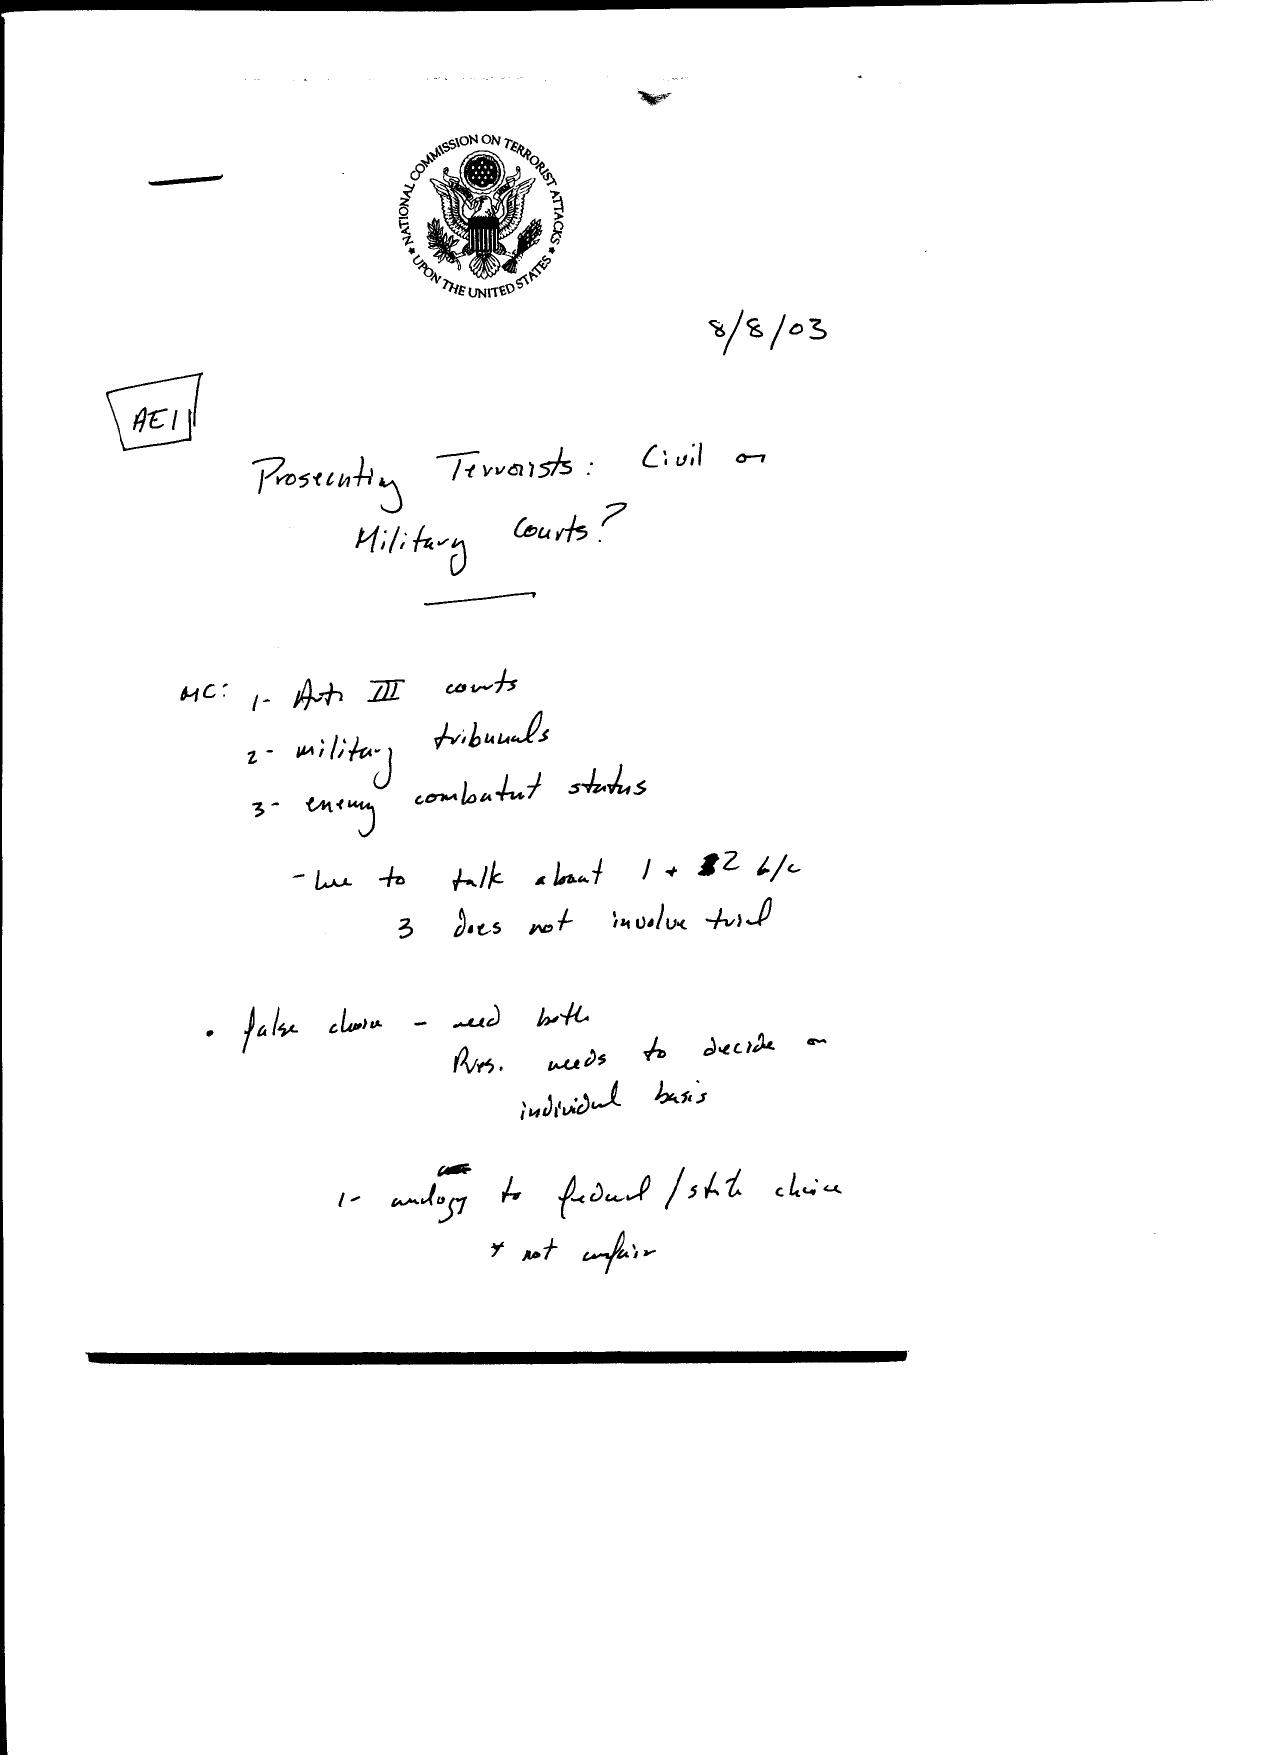 NATIONAL COMMISSION ON TERRORIST ATTACKS
UPON THE UNITED STATES
8/8/03
AEI
Prosecuting Terrorists: Civil or
Military Courts?
MC: 1- Art. III courts
2- military tribunals
3- enemy combatant status
- here to talk about 1 + 2 b/c
3 does not involve trial
• false choice - need both
Pres. needs to decide on
individual basis
1- analogy to federal/state choice
* not unfair